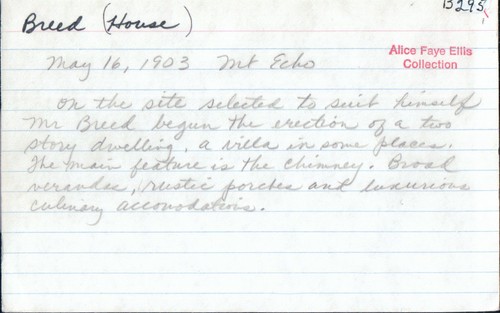 B295
Breed (House)
Alice Faye Ellis
Collection
May 16, 1903 Mt Echo
On the site selected to suit himself
Mr Breed begun the erection of a two
story dwelling, a villa in some places.
The main feature is the chimney. Broad
verandas, rustic porches and luxurious
culinary accomodations.